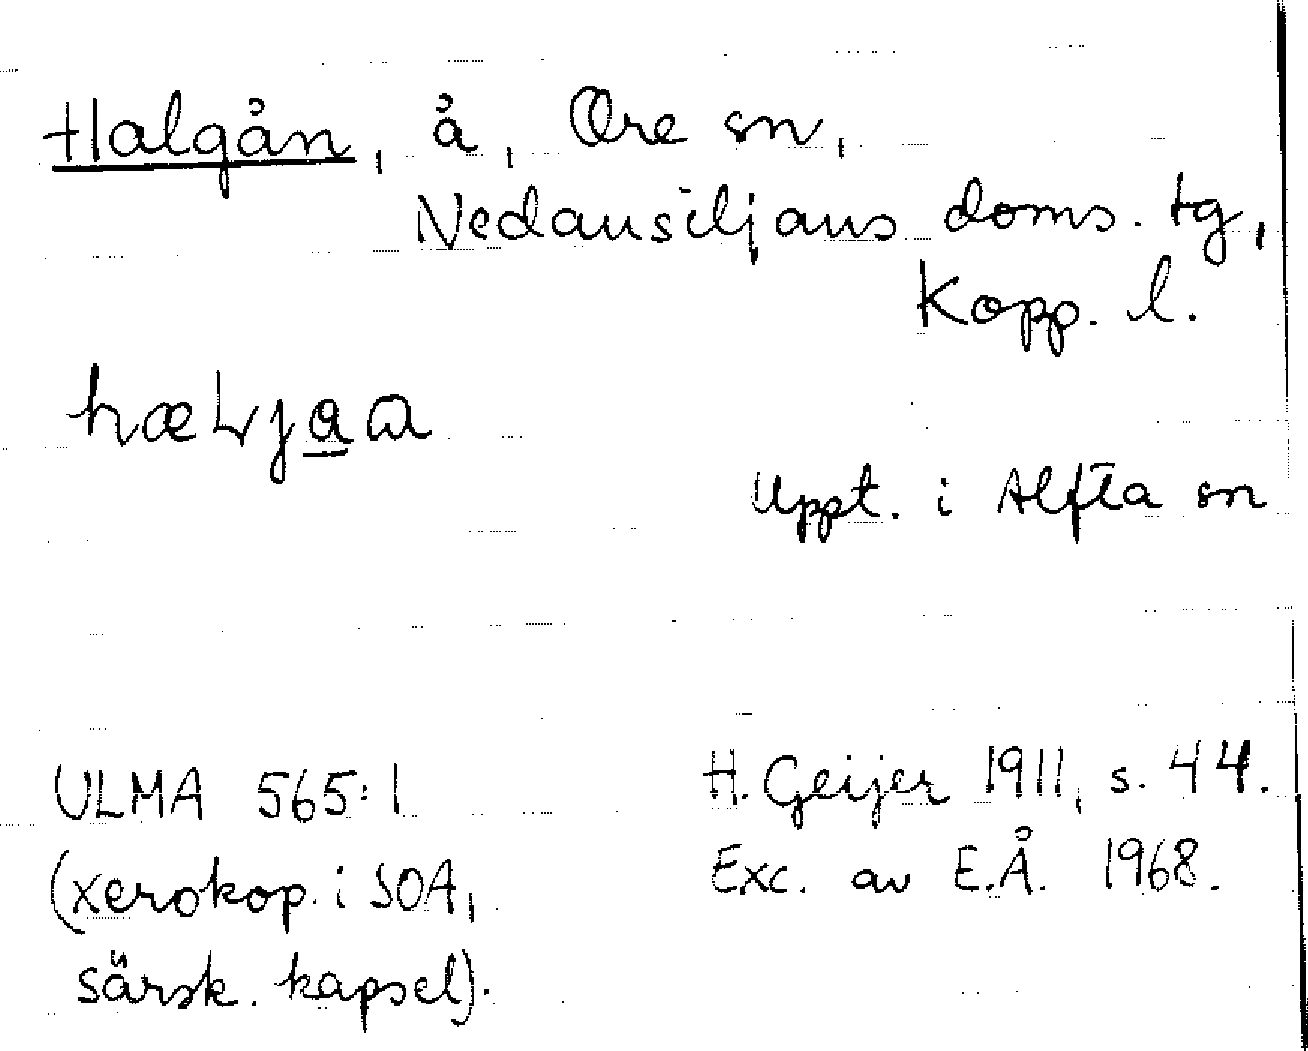 Halgån, å, Ore sn,
Nedansiljans doms. tg,
Kopp. l.
Uppt. i Alfta sn
ULMA 565:1
H. Geijer 1911, s. 44.
(xerokop. i SOA,
Exc. av E.Å. 1968.
särsk. kapsel).